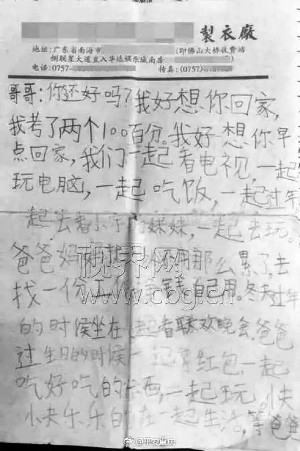 製衣廠
地址:广东省南海市 (即佛山大桥收费站
侧联星大道直入华达
电话:(0757- 传真:(0757)-
哥哥:你还好吗?我好想你回家,
我考了两个100百分。我好想你早
点回家,我们一起看电视,一起
玩电脑,一起吃饭,一起过年
一起去看小 妹妹,一起去玩。
爸爸妈妈 不用那么累了去
找一份工作 钱自己用。冬天过年
的时候坐在一起看联欢晚会,爸爸
过生日的时候一起 红包,一起
吃好吃的东西,一起玩,
快乐乐的在一起生活,等爸爸
视界网
www.cbg.cn